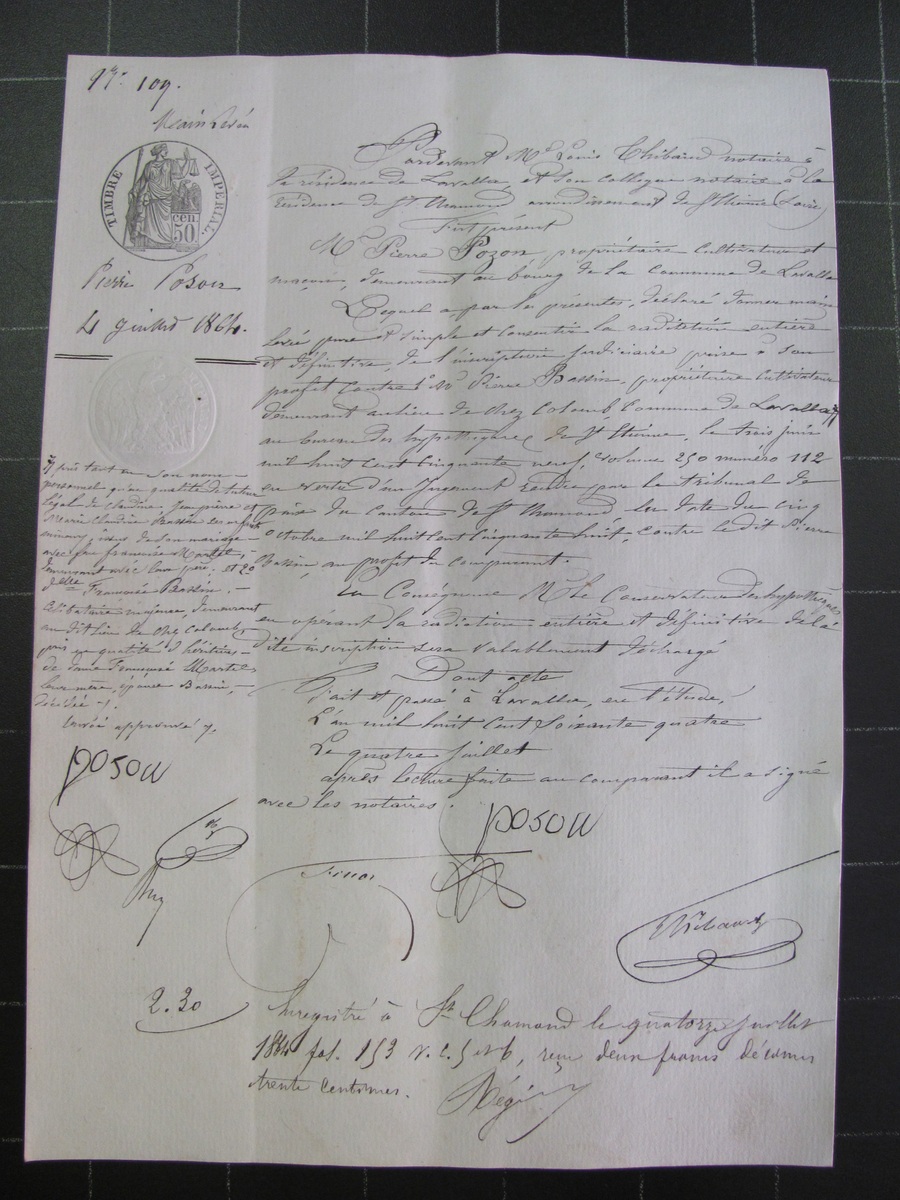 N° 109.
Main Levée
TIMBRE IMPÉRIAL.
cen. 50
Pierre Poson
4 juillet 1864.
Pardevant Me Louis Thibaud notaire à
la résidence de Lavalla, et son collègue notaire à la
résidence de St Chamond arrondissement de St Etienne, Loire
Fut présent
Mr Pierre Pozon, propriétaire cultivateur et
maçon, demeurant au bourg de la commune de Lavalla
Lequel a, par les présentes, déclaré donner main
levée pure et simple et consentir la radiation entière
et définitive, de l'inscription judiciaire prise à son
profit contre Mr Pierre Bassin, propriétaire cultivateur
demeurant au lieu de chez Colomb, commune de Lavalla
au bureau des hypothèques de St Etienne, le trois juin
mil huit cent cinquante neuf, volume 250 numéro 112
en vertu d'un jugement rendu par le tribunal de
paix du canton de St Chamond en date du cinq
octobre mil huit cent cinquante huit contre ledit Pierre
Bassin, au profit du comparant.
En conséquence Mr le Conservateur des hypothèques,
en opérant la radiation entière et définitive de la
dite inscription sera valablement déchargé
Dont acte
Fait et passé à Lavalla, en l'étude,
L'an mil huit cent soixante quatre
Le quatre juillet
après lecture faite au comparant il a signé
avec les notaires.
pris tant en son nom
personnel qu'en qualité de tuteur
légal de Claudine, Jean pierre et
Marie Claudine Bassin ses enfants
mineurs, issus de son mariage
avec feu françoise Martel,
demeurant avec leur père, et 2°
Françoise Bassin,
célibataire majeure, demeurant
au dit lieu de chez Colomb,
pris en qualité d'héritiers
de dame Françoise Martel
leur mère, épouse Bassin,
décédée
Renvoi approuvé
poson
poson
Finaz
Thibaud
2.30
Enregistré à St Chamond le quatorze juillet
1864 fol. 153 v. c. 5 et 6, reçu deux francs décimes
trente centimes.